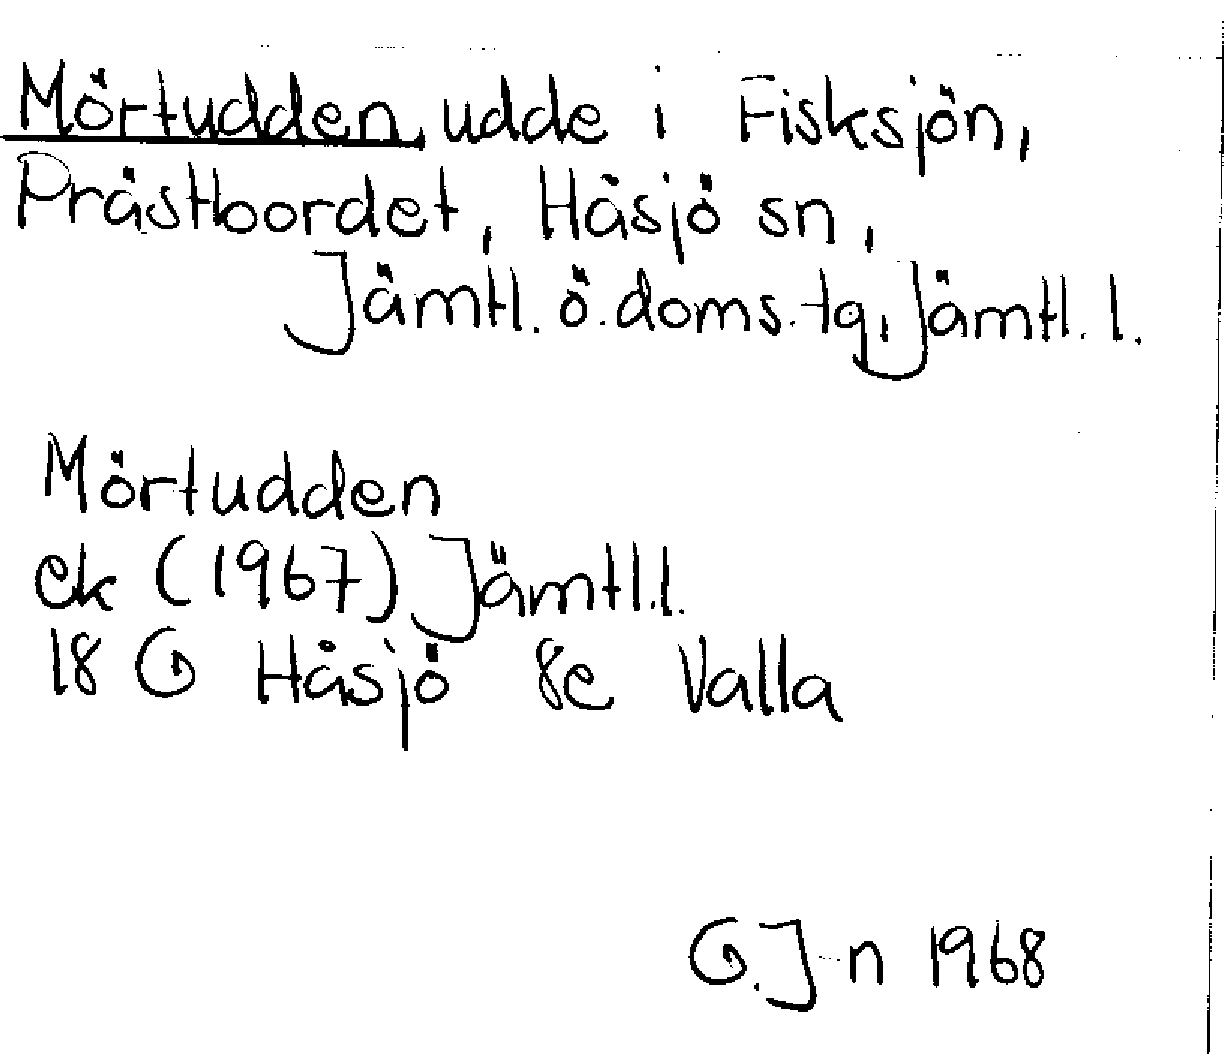 Mörtudden, udde i Fisksjön,
Prästbordet, Håsjö sn,
Jämtl. ö. doms. tg, Jämtl. l.
Mörtudden
ek (1967) Jämtl.l.
18 G Håsjö 8c Valla
G. J-n 1968